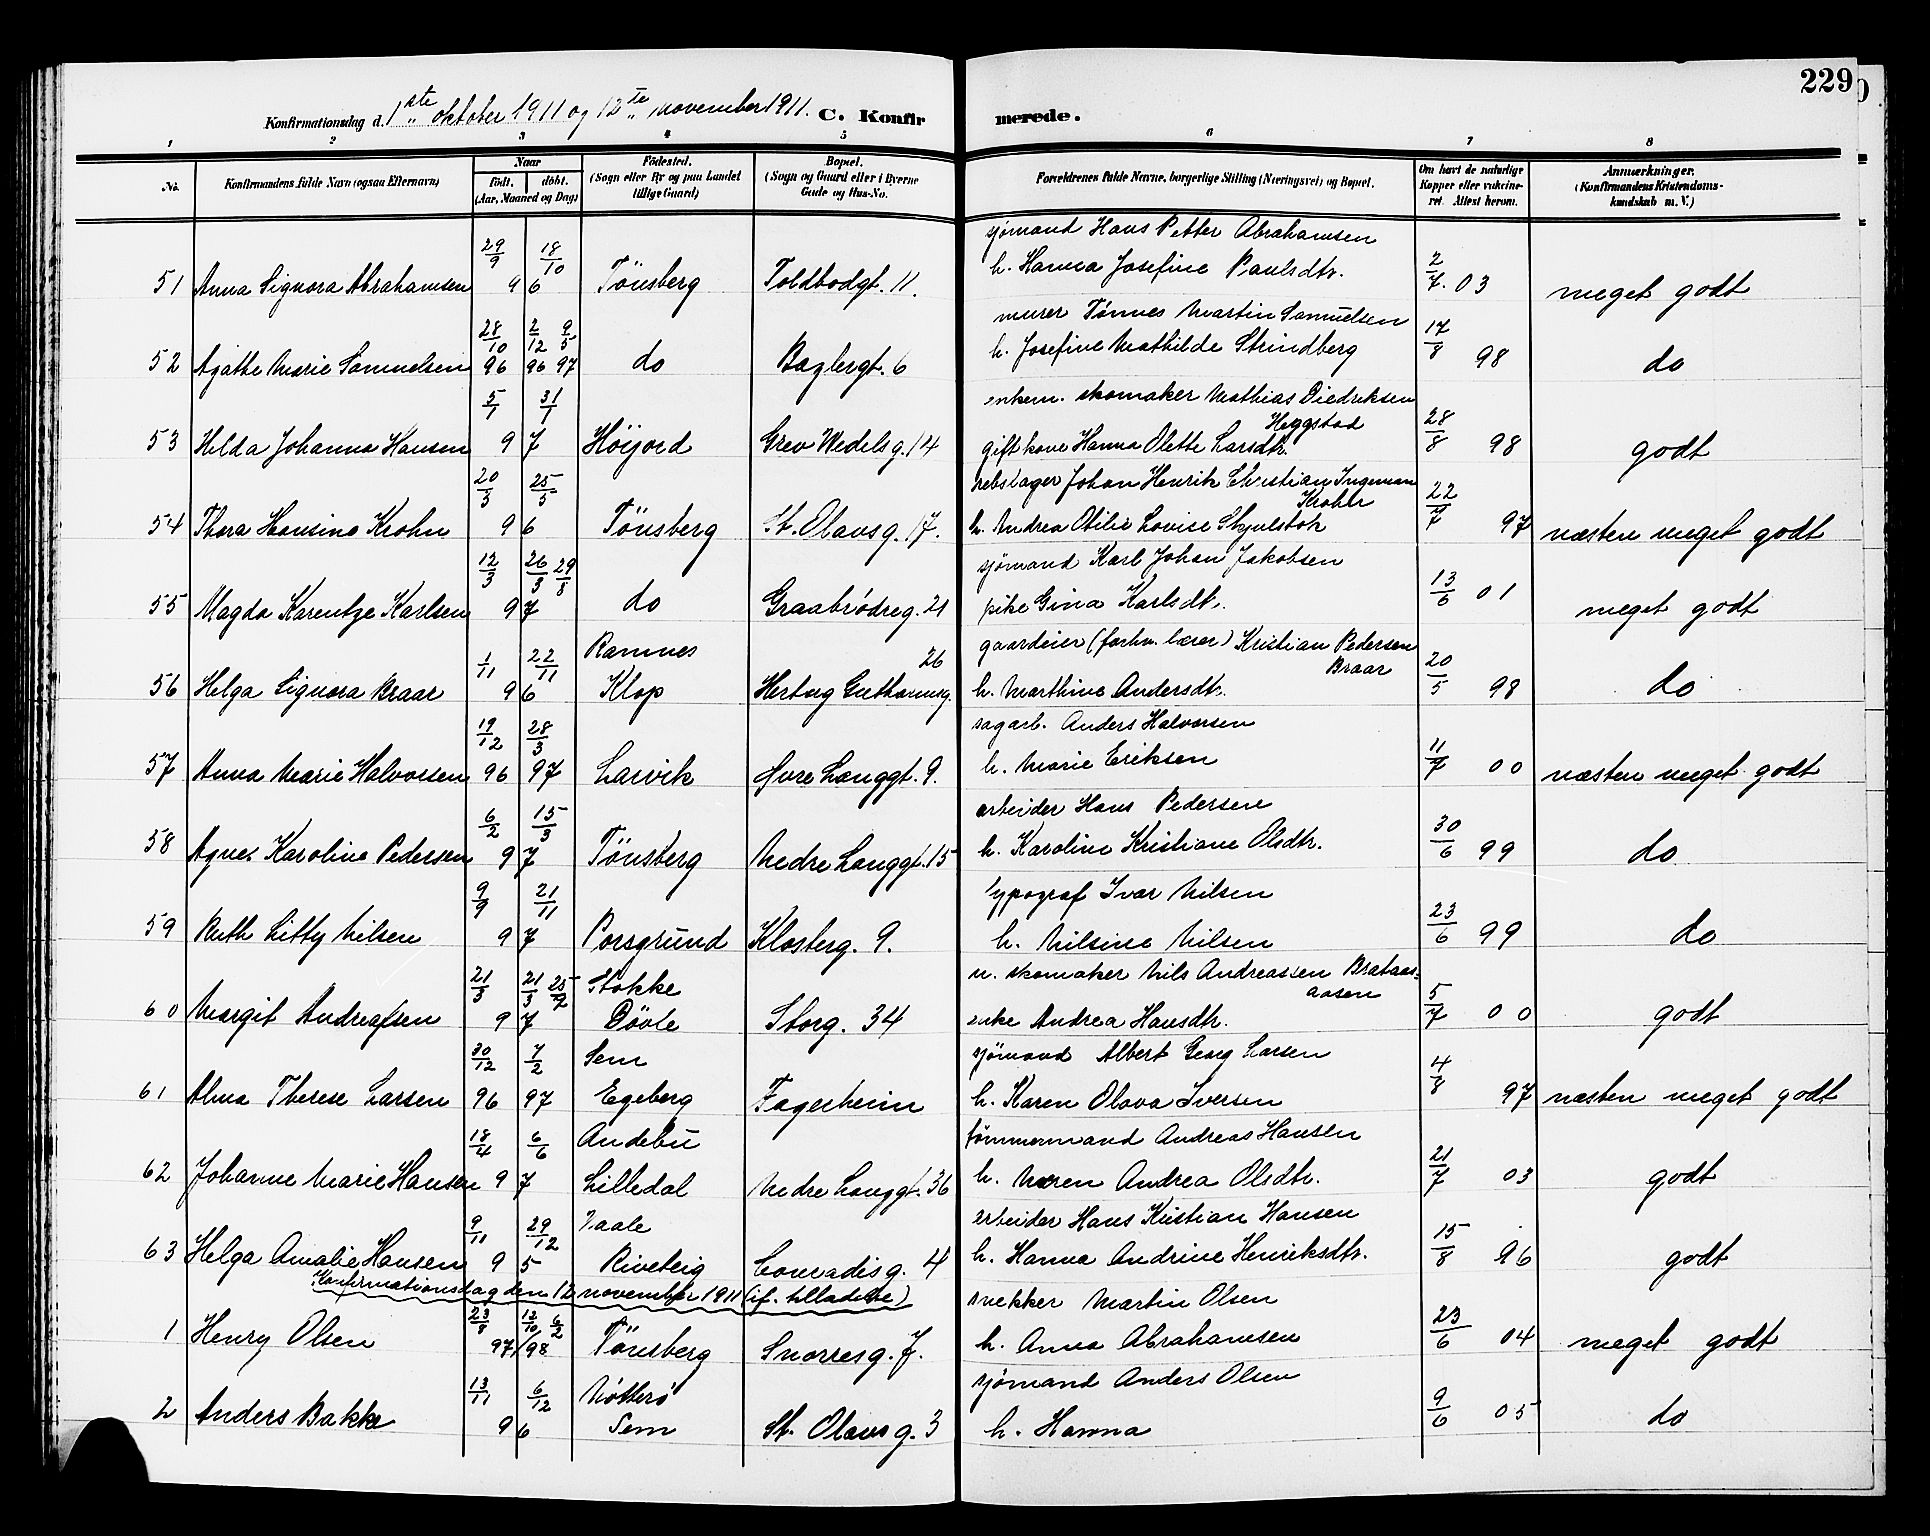 229
Konfirmationsdag d. 1ste oktober 1911 og 12te november 1911. C. Konfirmerede.
1 2 3 4 5 6 7 8
No. Konfirmandens fulde Navn (ogsaa Efternavn) Naar født. døbt. (Aar, Maaned og Dag) Fødested. (Sogn eller By og paa Landet tillige Gaard) Bopæl. (Sogn og Gaard eller i Byerne Gade og Hus-No. Forældrenes fulde Navne, borgerlige Stilling (Næringsvei) og Bopæl. Om havt de naturlige Kopper eller vaccineret. Attest herom. Anmærkninger. (Konfirmandens Kristendomskundskab m. V.)
29/9 18/10 sjømand Hans Petter Abrahamsen
51 Anna Signora Abrahamsen 96 Tönsberg Toldbodgt. 11. h. Hanna Josefine Paulsdtr. 2/7. 03 meget godt
28/10 2/12 9/5 murer Tønnes Martin Samuelsen
52 Agathe Marie Samuelsen 96 96 97 do Baglergt. 6 h. Josefine Mathilde Strindberg 17/8 98 do
5/1 31/1 enkem. skomaker Mathias Diedriksen
Heggstad
53 Helda Johanna Hansen 97 Höijord Grev Wedels g. 14 gift kone Hanna Olette Larsdtr. 28/8 98 godt
20/3 25/5 rebslager Johan Henrik Christian Ingeman
Krohn
54 Thora Hansine Krohn 96 Tönsberg St. Olavs g. 17. h. Andrea Otilie Lovise Skjulstok 22/7 97 næsten meget godt
12/3 26/3 29/8 sjömand Karl Johan Jakobsen
55 Magda Karentze Karlsen 97 do Graabrödreg. 21 pike Gina Karlsdtr. 13/6 01 meget godt
1/11 22/11 Ramnes 26 gaardeier (forhv. lærer) Kristian Pedersen
Braar
56 Helga Signora Braar 96 Klop Hertug Guthormsg. h. Marthine Andersdtr. 20/5 98 do
19/12 28/3 sagarb. Anders Halvorsen
57 Anna Marie Halvorsen 96 97 Larvik Øvre Langgt. 9. h. Marie Eriksen 11/7 00 næsten meget godt
6/2 15/3 arbeider Hans Pedersen
58 Agnes Karoline Pedersen 97 Tönsberg Nedre Langgt. 15 h. Karoline Kristiane Olsdtr. 30/6 99 do
9/9 21/11 typograf Ivar Nilsen
59 Ruth Litty Nilsen 97 Porsgrund Klosterg. 9. h. Nilsine Nilsen 23/6 99 do
21/3 21/3 25/7 Stokke u. skomaker Nils Andreassen Brataas-
aasen
60 Margit Andreassen 97 Dövle Storg. 34 enke Andrea Hansdtr. 5/7 00 godt
30/12 7/2 Sem sjömand Albert Georg Larsen
61 Alma Therese Larsen 96 97 Egeberg Fagerheim h. Karen Olava Iversen 4/8 97 næsten meget godt
18/4 6/6 Andebu tömmermand Andreas Hansen
62 Johanne Marie Hansen 97 Lilledal Nedre Langgt. 36 h. Maren Andrea Olsdtr. 21/7 03 godt
9/11 29/12 Vaale arbeider Hans Kristian Hansen
63 Helga Amalie Hansen 95 Riveteig Conradisg. 4 h. Hanna Andrine Henriksdtr. 15/8 96 godt
Konfirmationsdag den 12 november 1911 (if. tilladelse)
23/8 12/10 6/2 snekker Martin Olsen
1 Henry Olsen 97/98 Tönsberg Snorres g. 7. h. Anna Abrahamsen 23/6 04 meget godt
13/11 6/12 Nötterö sjömand Anders Olsen
2 Anders Bakke 96 Sem St. Olavs g. 3 h. Hanna 9/6 05 do